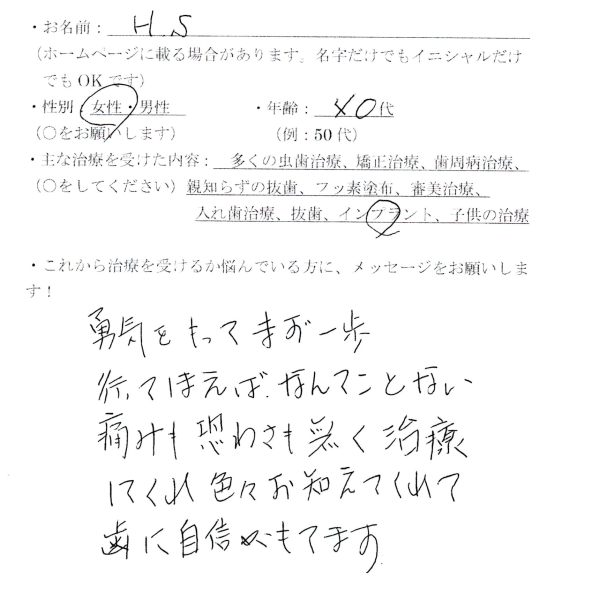 ・お名前： H.S
（ホームページに載る場合があります。名字だけでもイニシャルだけ
でもOKです）
・性別：女性・男性 ・年齢： 40代
（○をお願いします） （例：50代）
・主な治療を受けた内容： 多くの虫歯治療、矯正治療、歯周病治療、
（○をしてください）親知らずの抜歯、フッ素塗布、審美治療、
入れ歯治療、抜歯、インプラント、子供の治療
・これから治療を受けるか悩んでいる方に、メッセージをお願いしま
す！
勇気をもってまず一歩
行ってしまえば、なんてことない
痛みも恐わさも無く治療
してくれ色々お知えてくれて
歯に自信がもてます。